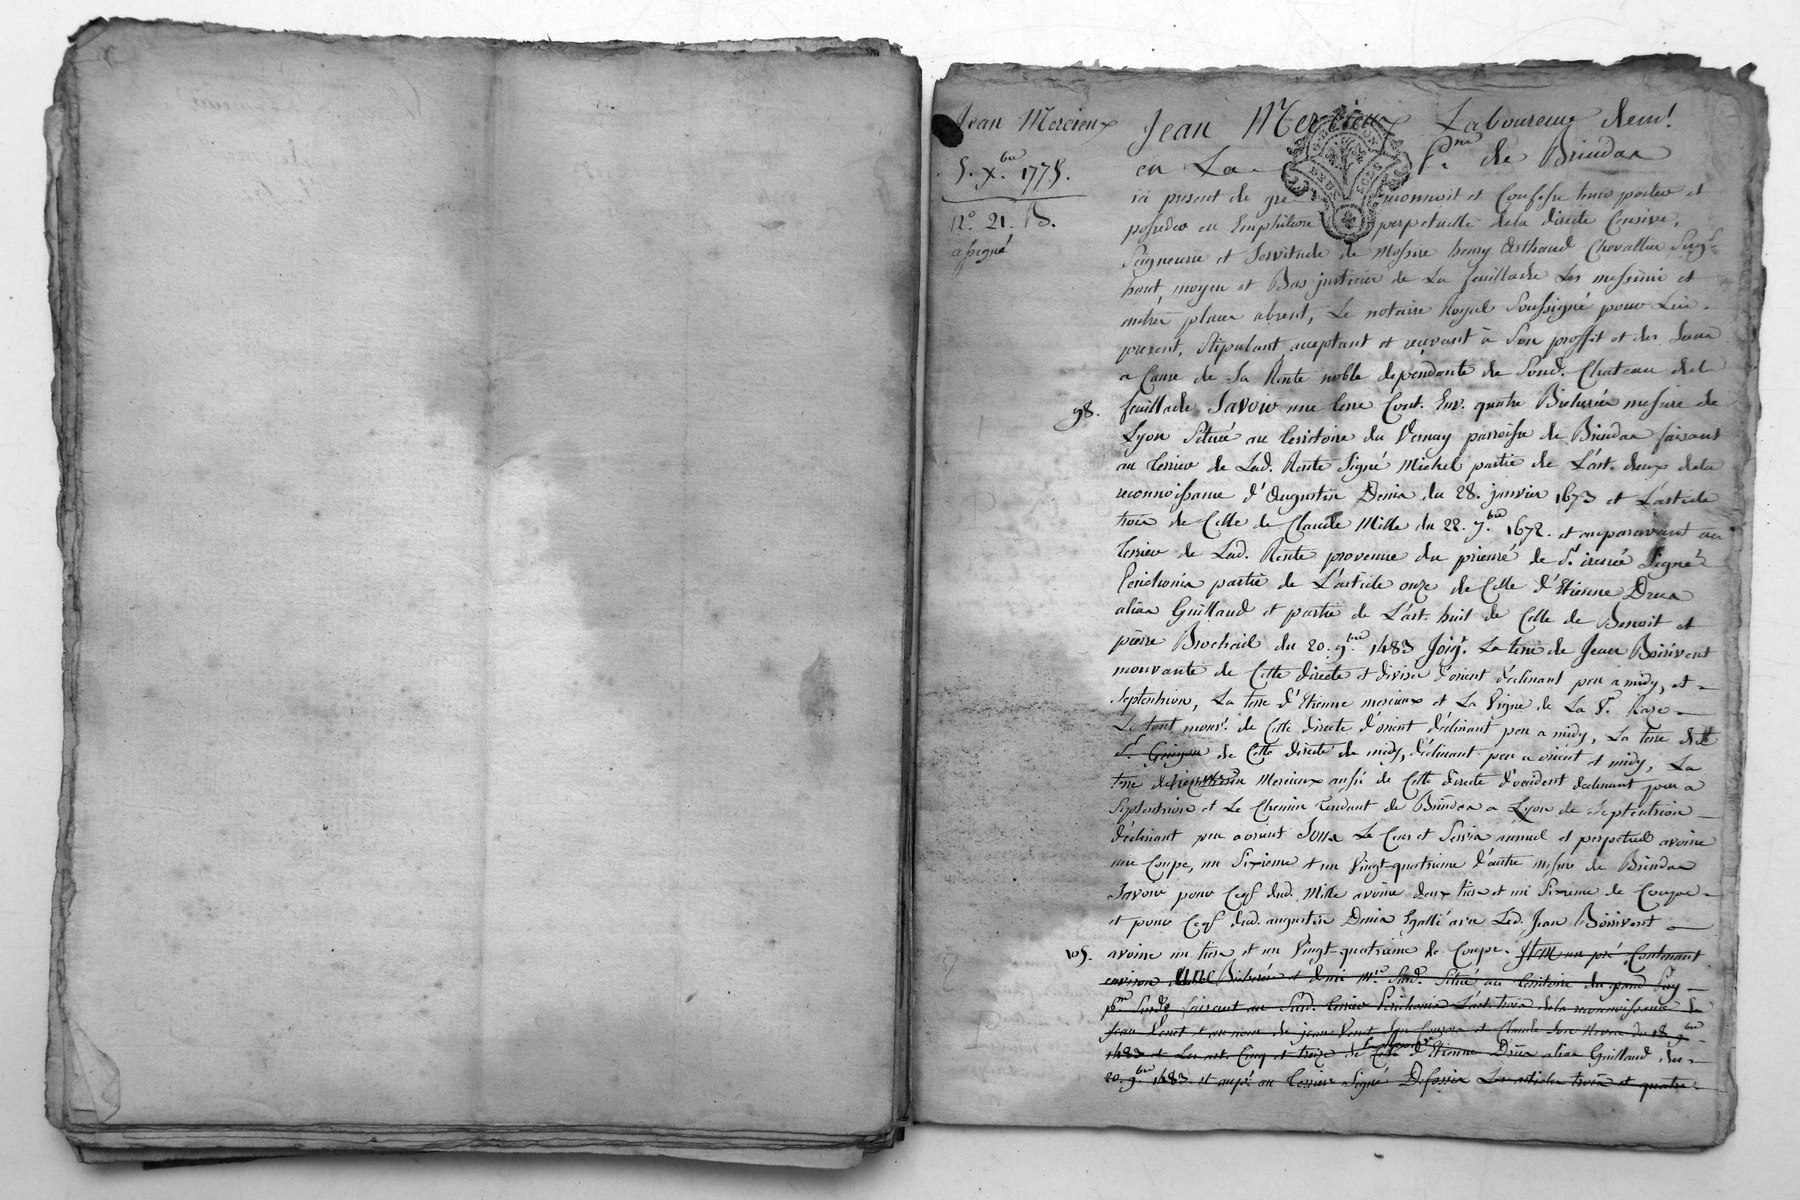 Jean Mercieux
5. Xbre 1775.
N.o 21. B.
a signé
Jean Mercieux Laboureur dem.t
en La p.sse de Brindas
ici présent de gré reconnoit et Confesse tenir porter et
posseder en Emphiteose perpetuelle de la directe Censive,
Seigneurie et Servitude de Messire henry Arthaud Chevallier Seig.r
haut moyen et Bas justicier de La feuillade Les messimi et
autres places absent, Le notaire Royal Soussigné pour Lui
present, Stipulant acceptant et recevant à Son proffit et des Siens
a Cause de Sa Rente noble dependante de Sond. Chateau de la
98. feuillade Savoir une terre Cont. Env. quatre Bicherées mesure de
Lyon Située au territoire du Vernay parroisse de Brindas faisant
au terrier de Lad. Rente Signé Michel partie de L'art. deux de la
reconnoissance d'Augustin Denis du 28. janvier 1673 et L'article
trois de Celle de Claude Mille du 22. 7.bre 1672. et auparavant au
terrier de Lad. Rente provenue du prieuré de S.t irenée Signé
partie de L'article onze de Celle d'Etienne Drua
alias Guillaud et partie de L'art. huit de Celle de Benoit et
pierre Brochail du 20. 9.bre 1483 Joig.t La terre de Jean Boirivent
mouvante de Cette directe et divise d'orient déclinant peu a midy, et
Septentrion, La terre d'Etienne mercieux et La Vigne de La V.e Raze
Le tout mouv.t de Cette directe d'orient déclinant peu a midy, La terre de
S.r de Cette directe de midy, déclinant peu a orient et midy, La
terre Mercieux aussi de Cette directe d'occident declinant peu a
Septentrion et Le Chemin tendant de Brindas a Lyon de Septentrion
déclinant peu a orient Sous Le Cens et Servis annuel et perpetuel avoine
une Coupe, un Sixieme et un Vingt-quatrieme d'autre mesure de Brindas
Savoir pour Ceg.f dud. Mille avoine deux tiers et un Sixieme de Coupe
et pour Ceg.f dud. augustin Denis Egallé avec Led. Jean Boirivent
105. avoine un tiers et un Vingt-quatrieme de Coupe. Item un pré Contenant
environ une Bicherée et demi m.re Sud. Situé au territoire du grand
p.sse Susd. faisant au Sud. terrier L'art. trois de la reconnoissance de
Jean Venet et au nom de jean Venet Son et Claude Son Neveu du 18 9.bre
1483 et Les art. Cinq et treize de Celle d'Etienne Drua alias Guillaud du
20. 9.bre 1483 et aup.t au terrier Signé Les articles trois et quatre